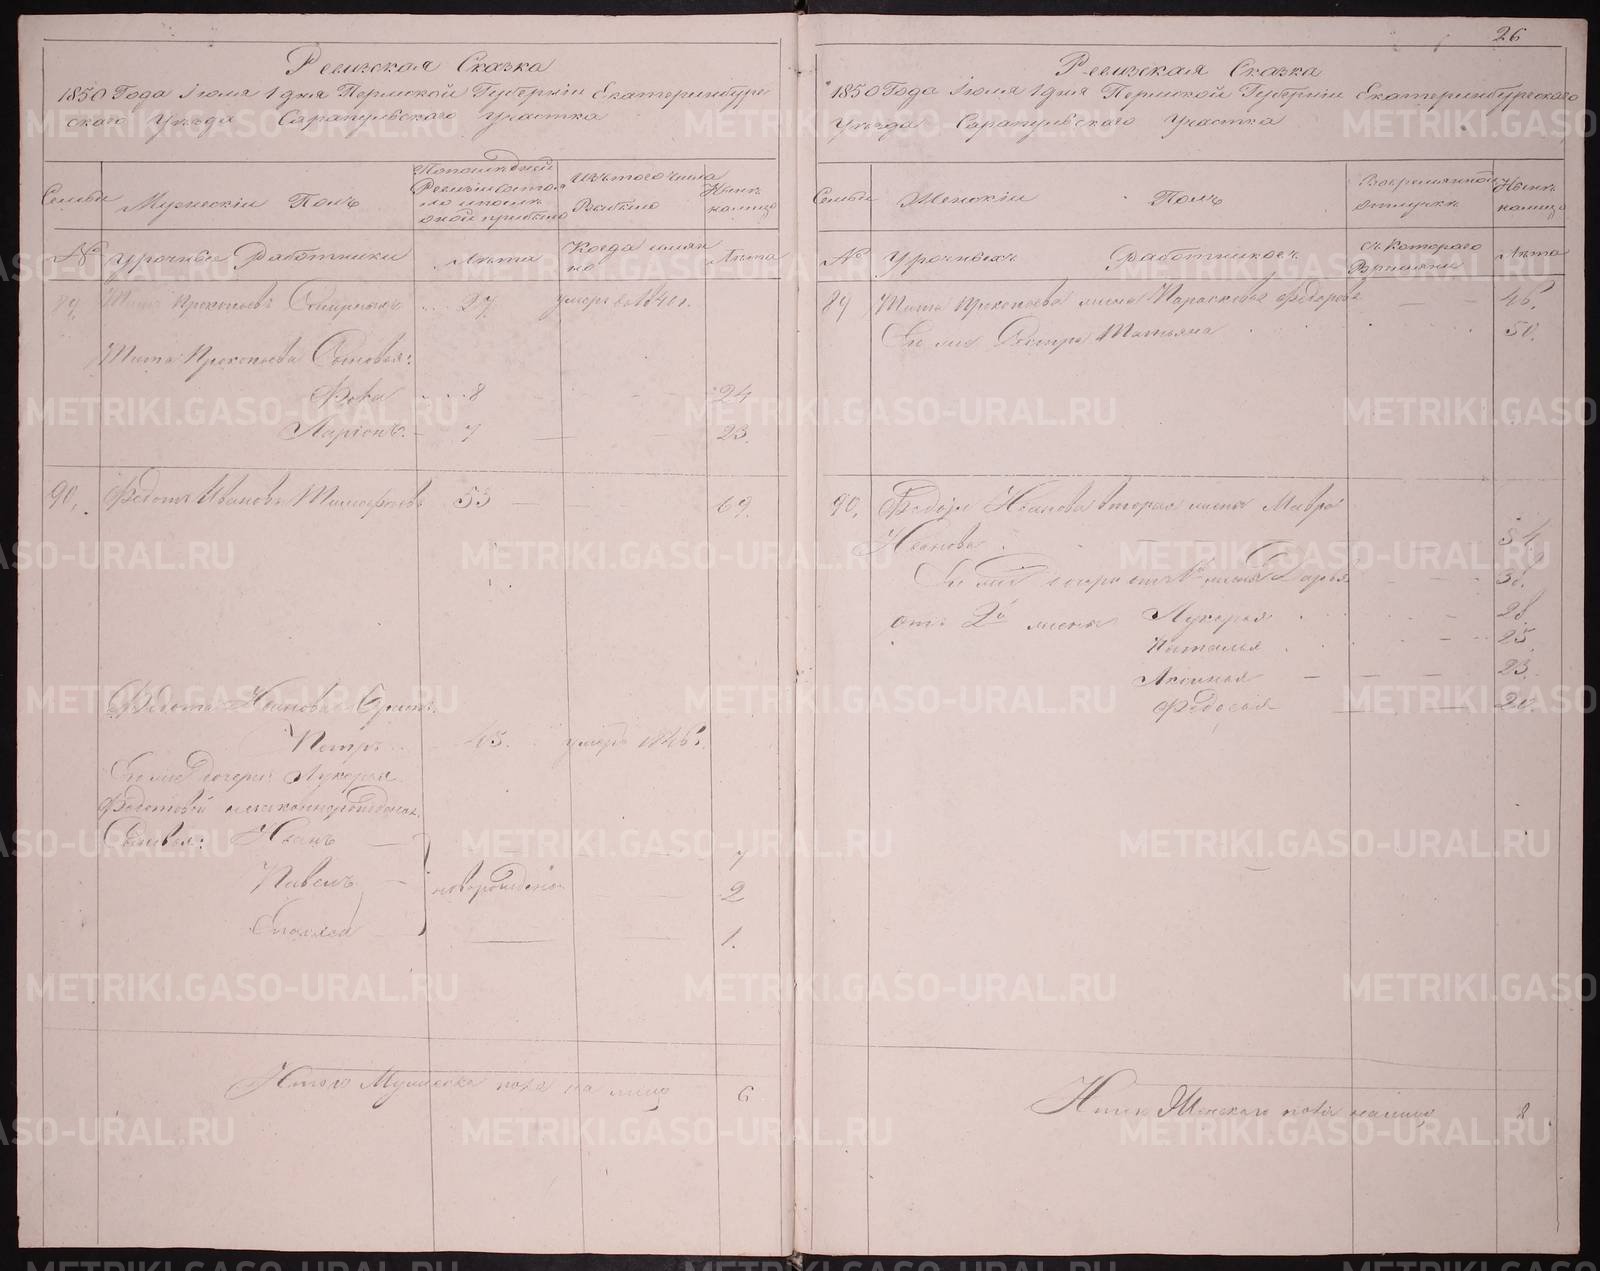 Ревизская Сказка
1850 Года Июля 1 дня Пермской Губернiи Екатеринбург-
скаго Уѣзда Сарапульскаго Участка
Семьи
Мужескiй Полъ
По последней
Ревизiи состоя
Изъ того числа
Выбыло
Нынѣ
налицо
№
Урочные Работники
Лѣта
Когда имян
но
Лѣта
89. Прокопьевъ 27 умеръ въ 1840 г.
Тита Прокопьева Сыновья:
Фока 8 24
Ларiонъ 7 23.
90. Федотъ Ивановъ Тимофеевъ 53 69.
Федота Иванова Братъ
Петръ 45. умеръ 1846 г.
Его же дочери Лукерьи
Федотовой незаконнорожденные
Сыновья: Иванъ 7
Павелъ новорожденные 2
1.
Итого Мужеска пола на лицо 6
26
Ревизская Сказка
1850 Года Июля 1 дня Пермской Губернiи Екатеринбургскаго
Уѣзда Сарапульскаго Участка
Семьи
Женскiй Полъ
Во временной
отлучкѣ
Нынѣ
налицо
№
Урочныхъ Работниковъ
Съ Котораго
Времяни
Лѣта
89 Тита Прокопьева жена Парасковья Федорова 46.
Его же Сестра Татьяна 50.
90. Федота Иванова вторая жена Мавра
Иванова 54.
Его же дочери отъ 1й жены Дарья 36.
отъ 2й жены Лукерья 28.
Наталья 25.
Аксинья 23.
Федосья 20.
Итого Женскаго пола налицо 8
METRIKI.GASO-URAL.RU